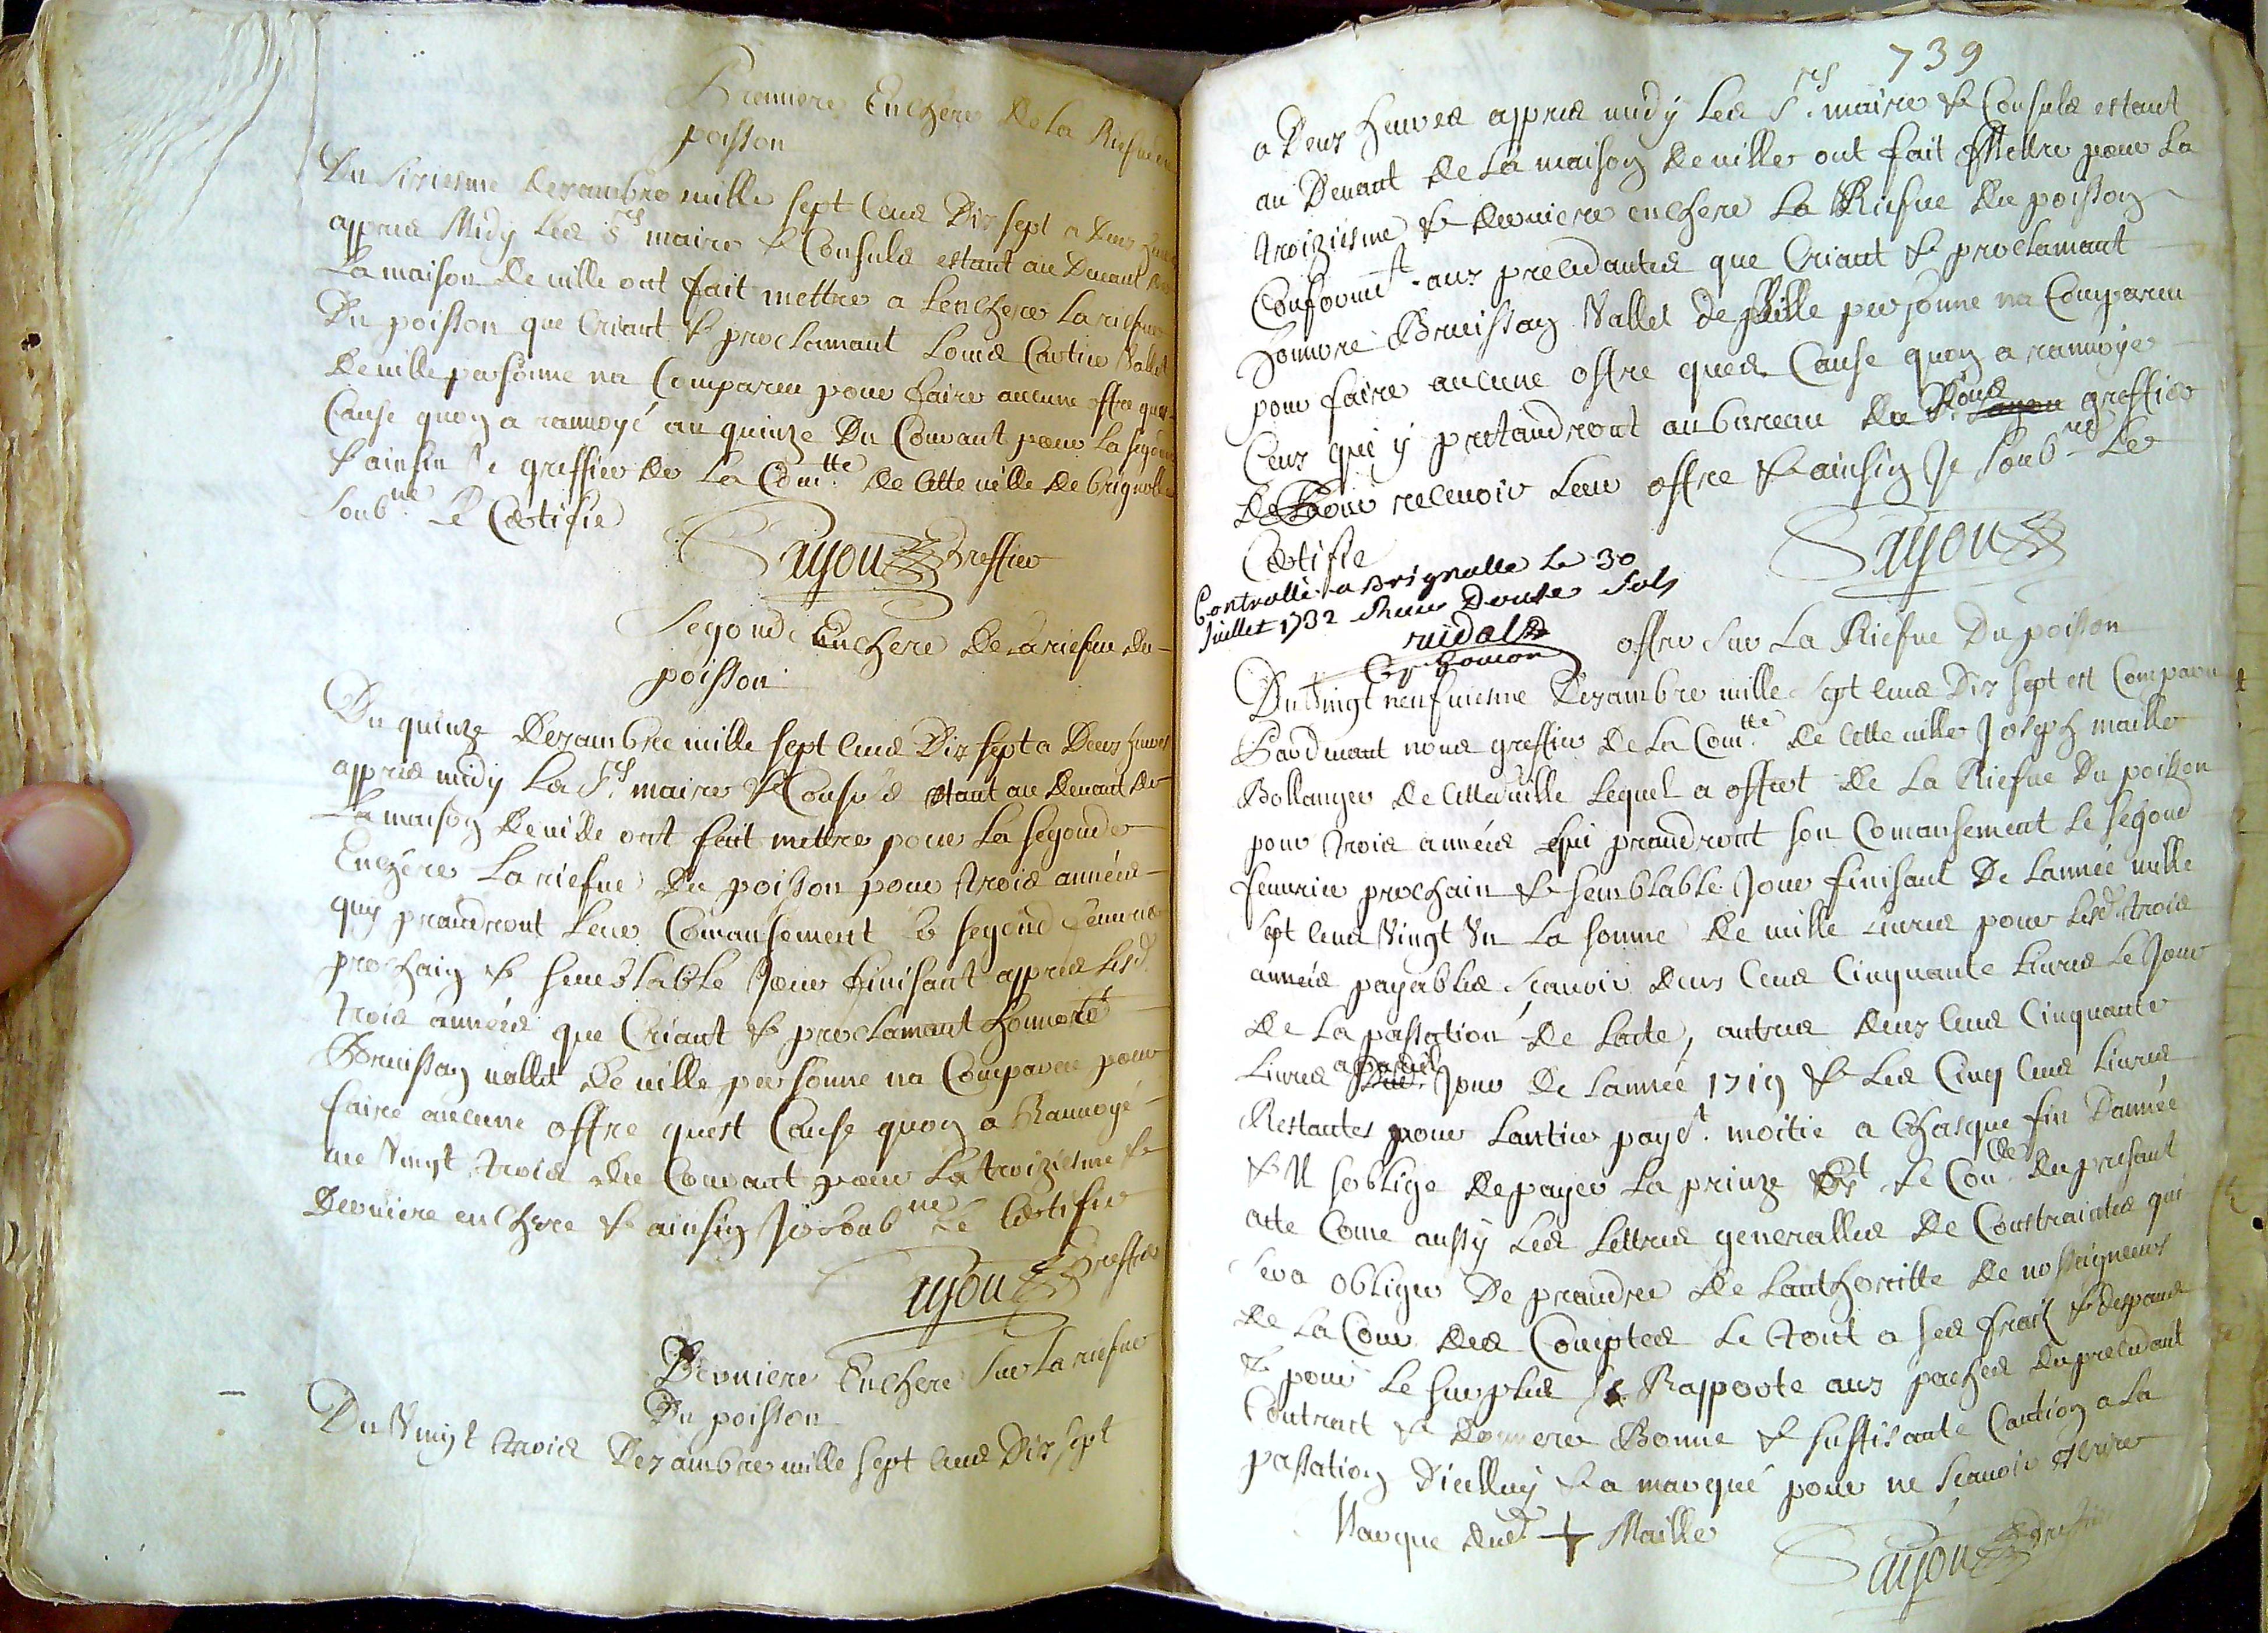 Premiere Enchere De la Riefue du
poisson
Du sixiesme dezambre mille sept cens Dix sept a deux heures
appres Midy les Srs maire & Consuls estant au Devant de
La maison de ville ont fait mettre a lenchere La riefue
Du poisson que Criant & proclamant Louis Cartier Vallet
de ville personne na Compareu pour faire aucune offre ques
Cause quon a ranvoyé au quinze Du Couvant pour la segonde
& ainsin Je greffier de La Comtte de Cette ville de brignolle
soubné Le Certifie
Sayou Greffier
Segonde Enchere De la riefue du
poisson
Du quinze Dezambre mille sept cens Dix sept a Deux heures
appres midy Les Srs maire & Consuls Etant au devant de
La maison de ville ont fait mettre pour La segonde
Enchere La riefue du poisson pour trois années
quy prandront Leur Comansement le segond feuvrier
prochain & semblable Jour finisant appres lesd.
trois années que Criant & proclamant honnoré
Bruissan vallet de ville personne na Compareu pour
faire aucune offre quest Cause quon a Ranvoyé
au Vingt trois du Couvant pour La troiziesme &
Derniere enchere & ainsin Je soubné Le Certifie
Sayou Greffier
Derniere Enchere Sur La riefue
Du poisson
Du Vingt trois Dezambre mille sept cens Dix sept
739
a Deux heures appres midy les Srs. maire & Consuls estant
au Devant de La maison de ville ont fait Mettre pour La
troiziesme & derniere enchere La Riefue du poisson
Conformt. aux precedantes que Criant & proclamant
honnoré Bruissan Vallet de Ville personne na Compareu
pour faire aucune offre ques Cause quon a ranvoyé
Ceux que y pretandront au bureau de Nous Sayou greffier
De pour recevoir Leur offre & ainsin Je soubné Le
Certifie
Sayou
Controllé a Brignolle Le 30
Juillet 1732 Receu Douse sols
vidal
offre Sur La Riefue Du poisson
Du Vingt neufviesme Dezambre mille sept cens Dix sept est Compareu
Pardevant nous greffier de La Comtte de Cette ville Joseph maille
Bollanger de Cette ville Lequel a offert de La Riefue Du poisson
pour trois années qui prandront son Comansement le segond
feuvrier prochain & semblable Jour finisant De Lannée mille
sept cens Vingt Un La somme de mille Livres pour lesd. trois
années payables scauoir deux Cens Cinquante Livres Le Jour
de La passation de Lacte, autres deux Cens Cinquante
Livres a pareil Jour de Lannée 1719 & Les Cinq Cens Livres
Restantes pour Lantier payt. moitie a Chasque fin Dannée
& Il soblige de payer La prinze & Le Conlle du presant
acte Come aussy Les Lettres generalles De Constraintes qui
sera obliger De prandre de Lauthoritte De nosseigneurs
de La Cour des Comptes Le tout a ses frais & despans
& pour Le surplus se Rapporte aux paches du precedant
Contract & donnera Bonne & suffisante Caution a La
passation Dicelluy & a marqué pour ne scauoir escrire
Marque dud. + Maille
Sayou Greffier